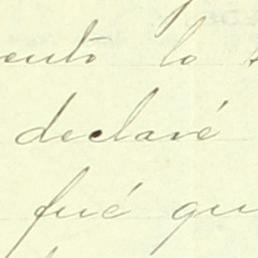 ento lo
declaré
fué qu